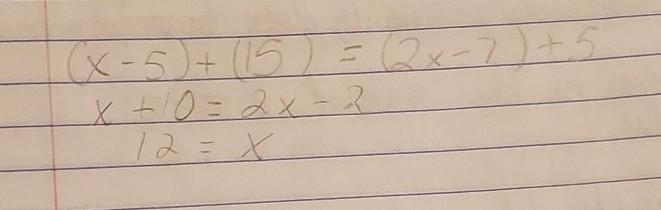 (x-5)+(15) = (2x-7)+5
x+10=2x-2
12=x